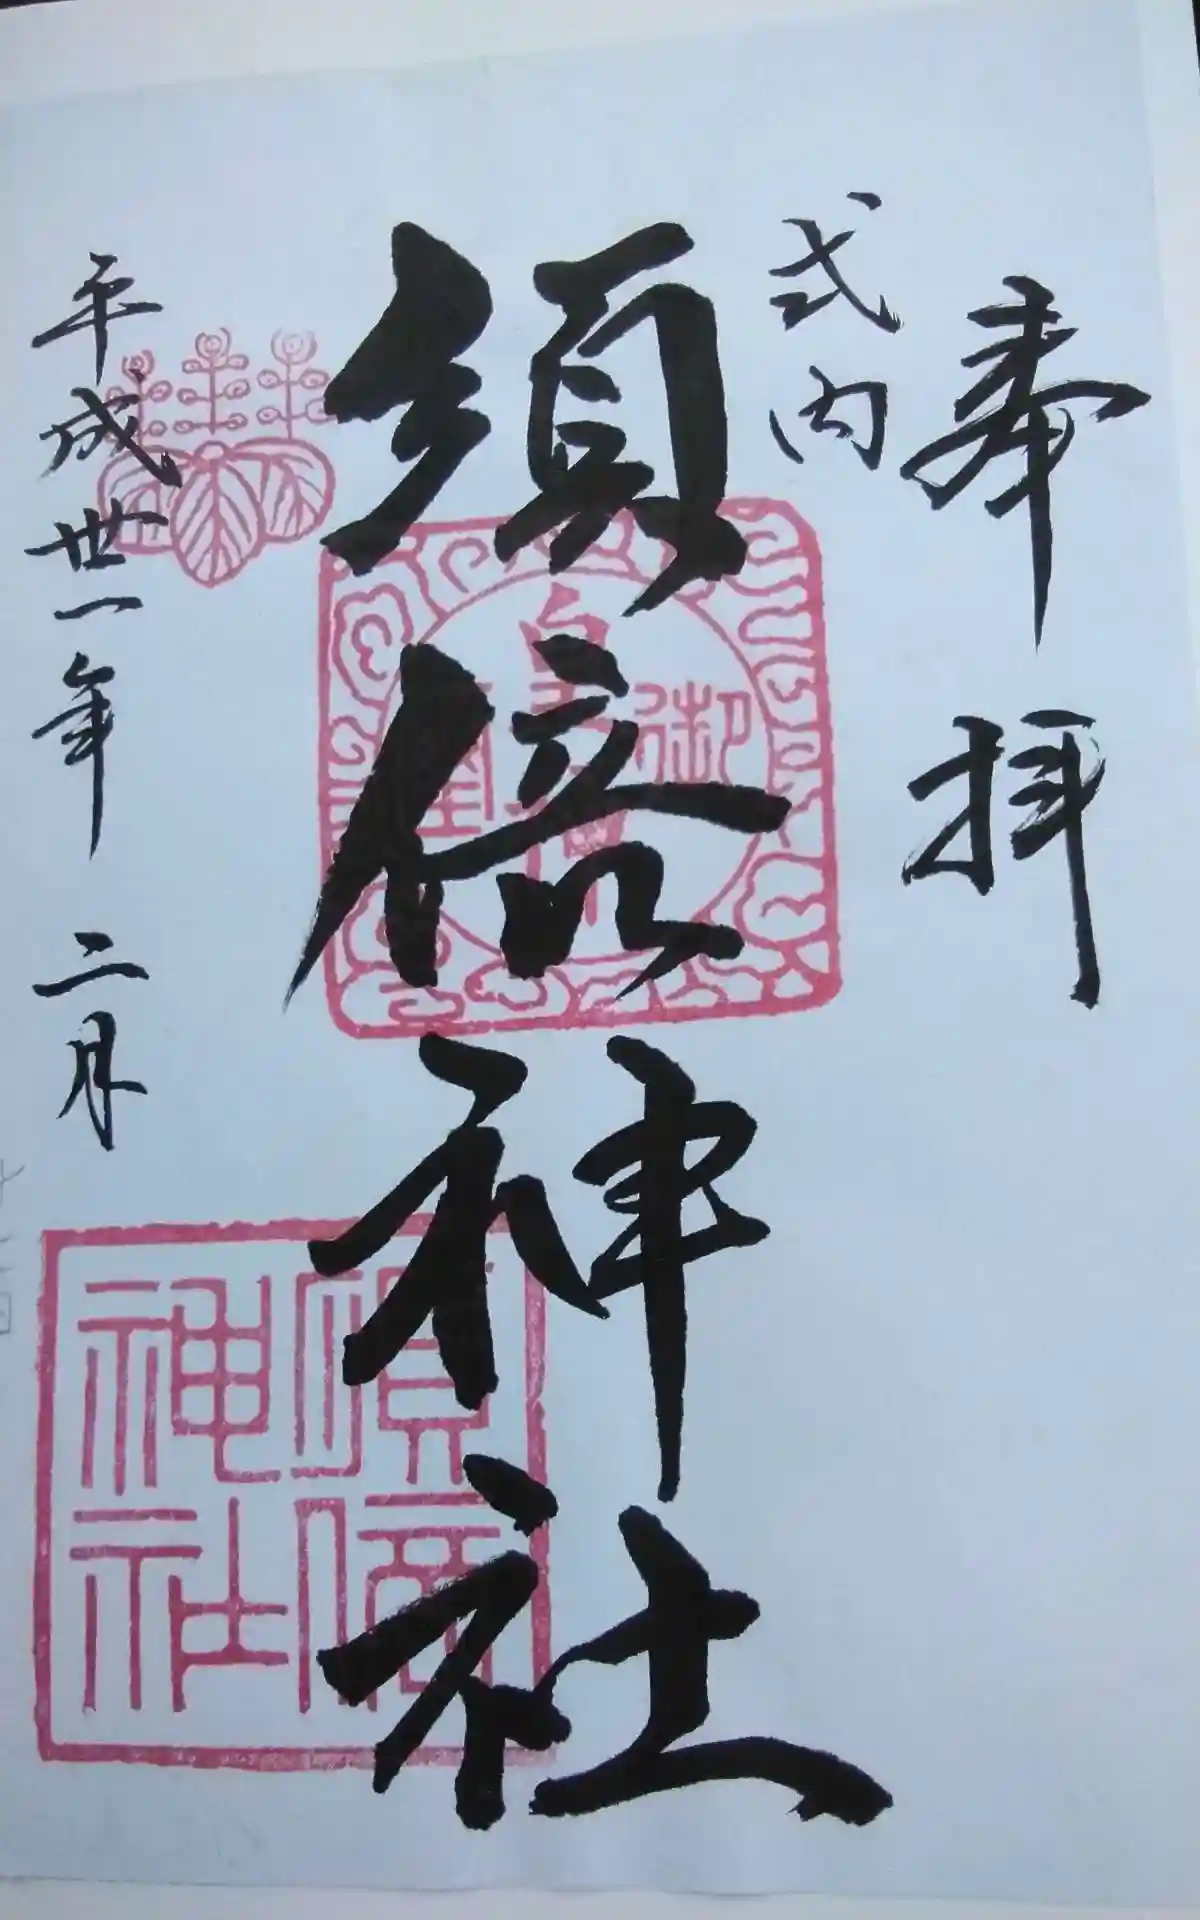 奉拝
式内
須倍神社
平成丗一年 二月
須倍
神社